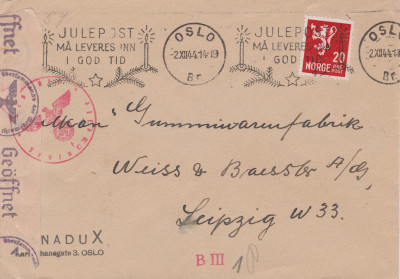 JULEPOST
MÅ LEVERES INN
I GOD TID
OSLO
2.XII44.14-19
Br.
JULEPOST
MÅ LEVERES INN
I GOD
OSLO
2.XII44.14-19
Br.
20
NORGE
Geöffnet
"Man" Gummiwarenfabrik
Weiss & Baessler A/G,
Leipzig W 33.
NADUX
Karl
hansgate 3. OSLO
B III